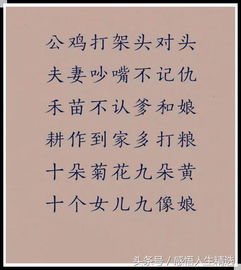 公鸡打架头对头
夫妻吵嘴不记仇
禾苗不认爹和娘
耕作到家多打粮
十朵菊花九朵黄
十个女儿九像娘
头条号／感悟人生精选